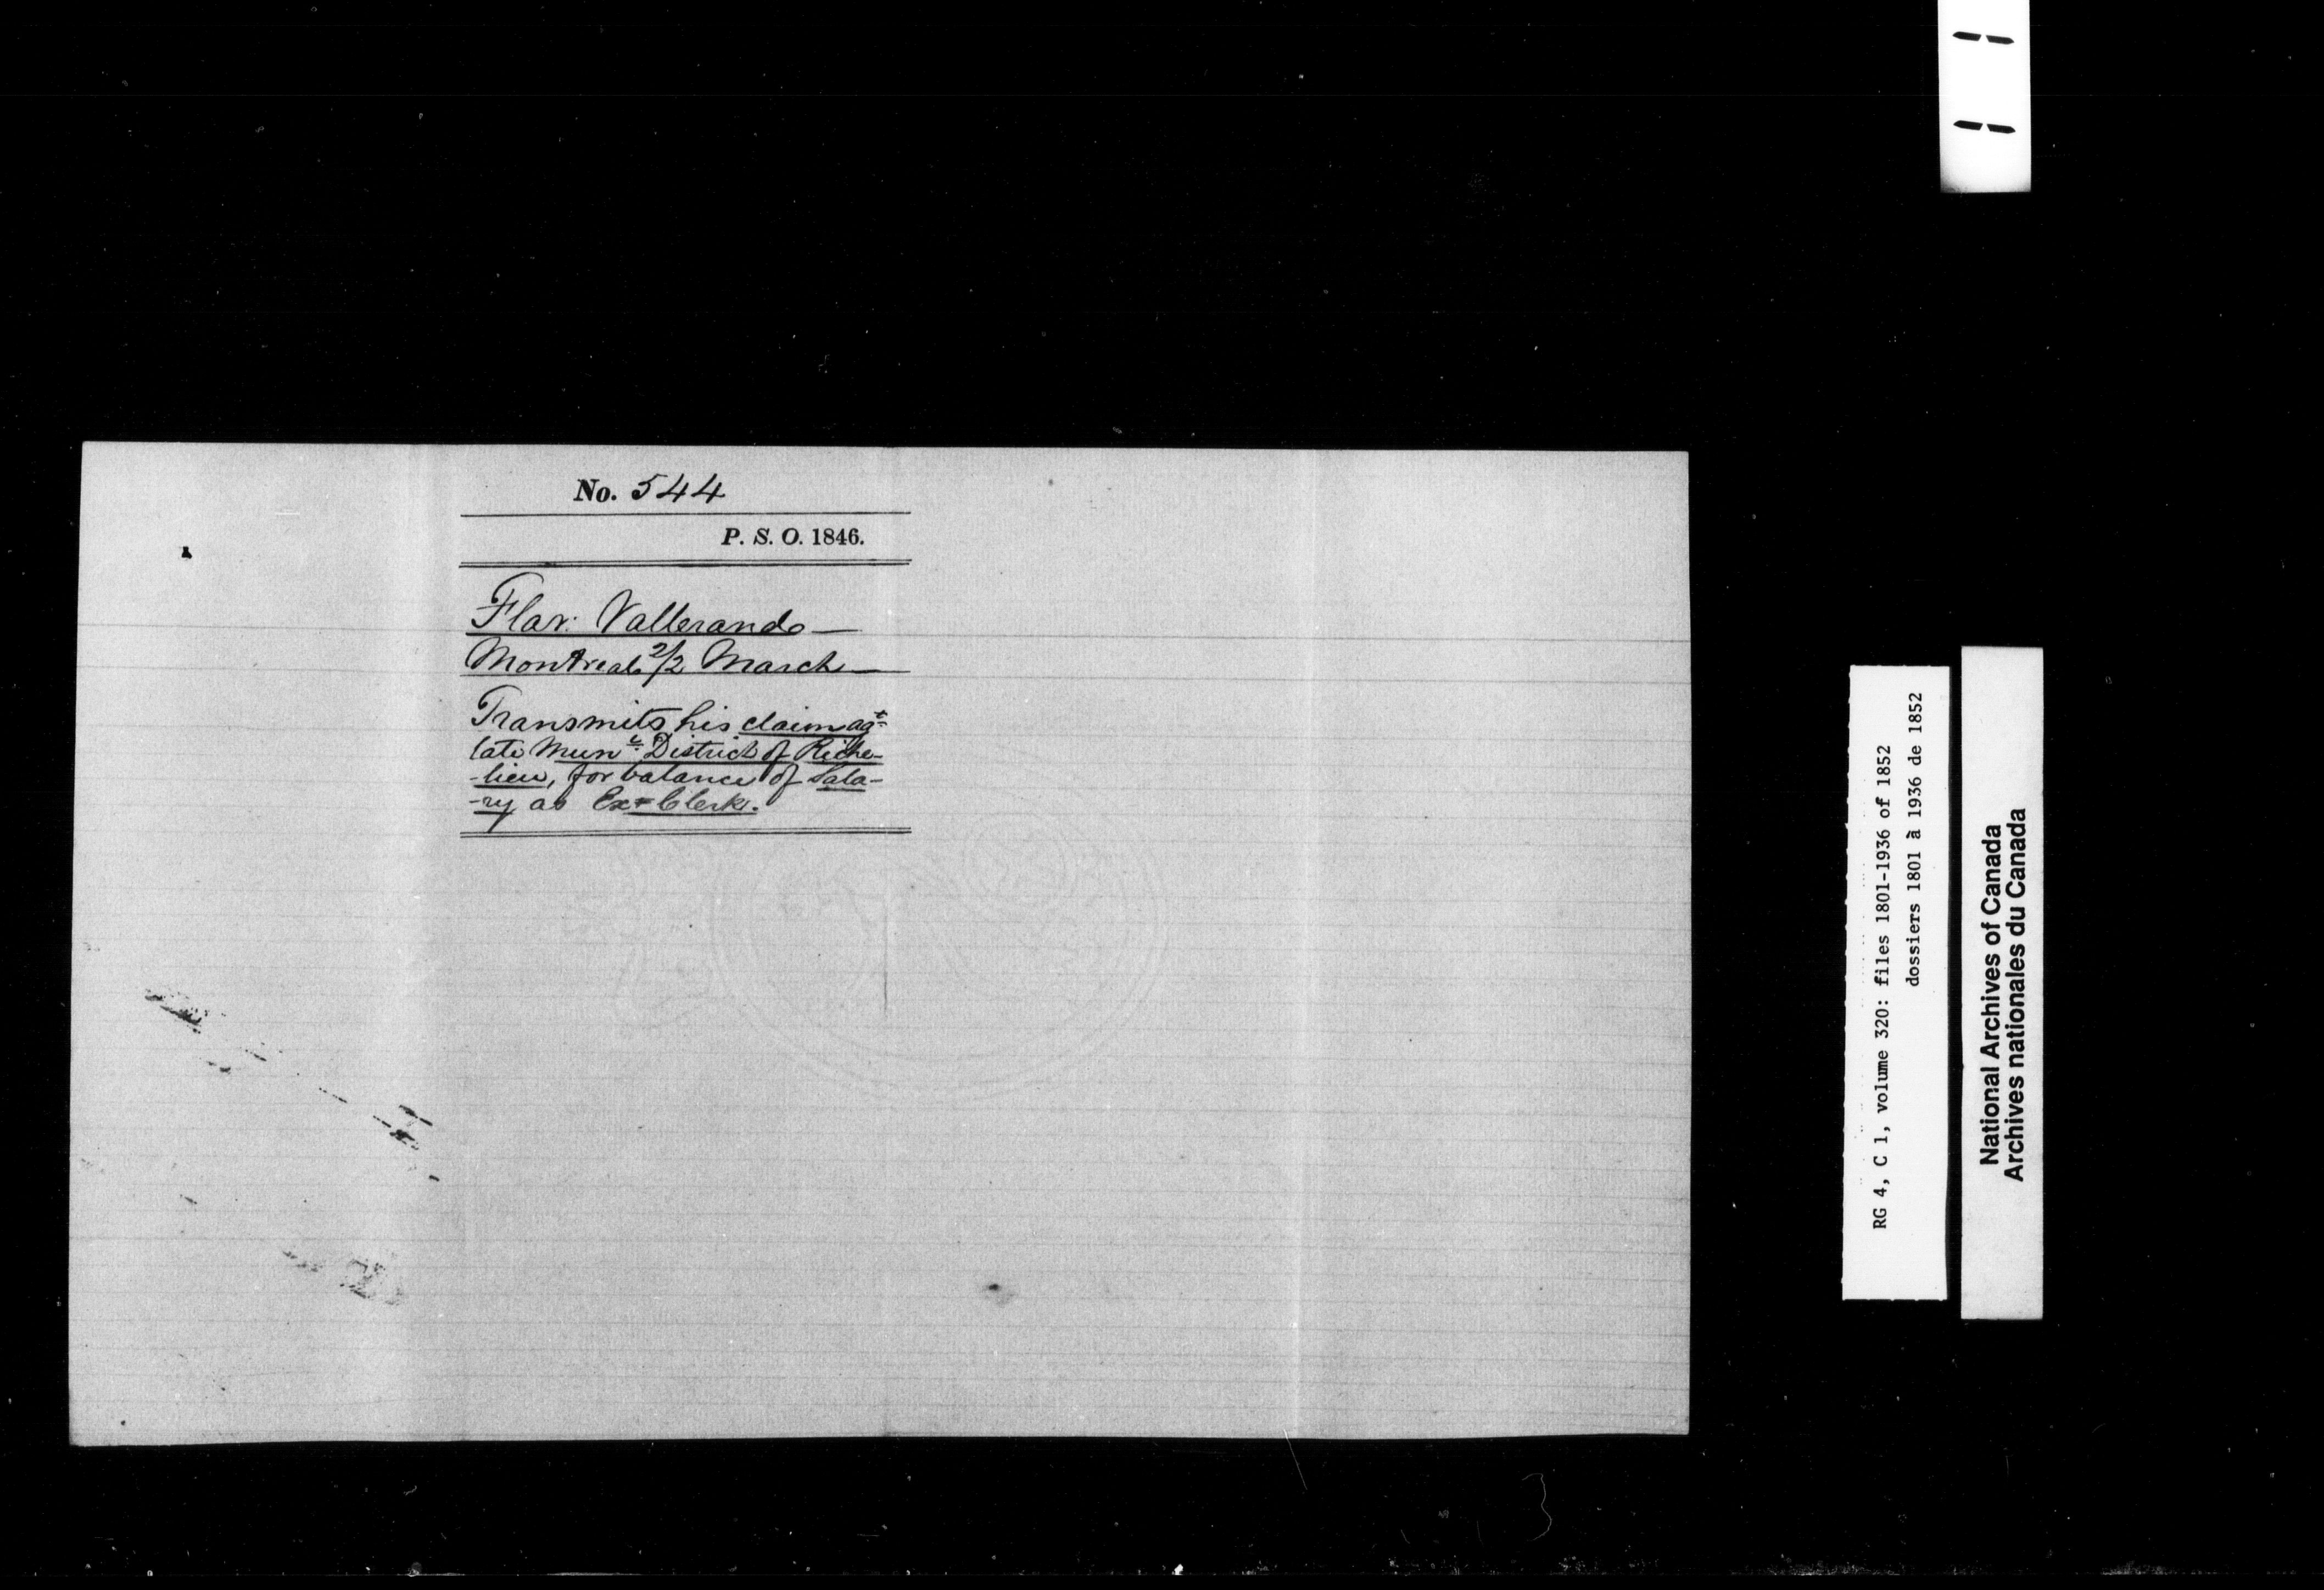 No. 544
P. S. O. 1846.
Flav: Vallerand
Montreal 2/2 March
Transmits his claim agt
late Munl District of Riche-
-lieu, for balance of Sala-
-ry as Ex-Clerk.
RG 4, C 1, volume 320: files 1801-1936 of 1852
dossiers 1801 à 1936 de 1852
National Archives of Canada
Archives nationales du Canada